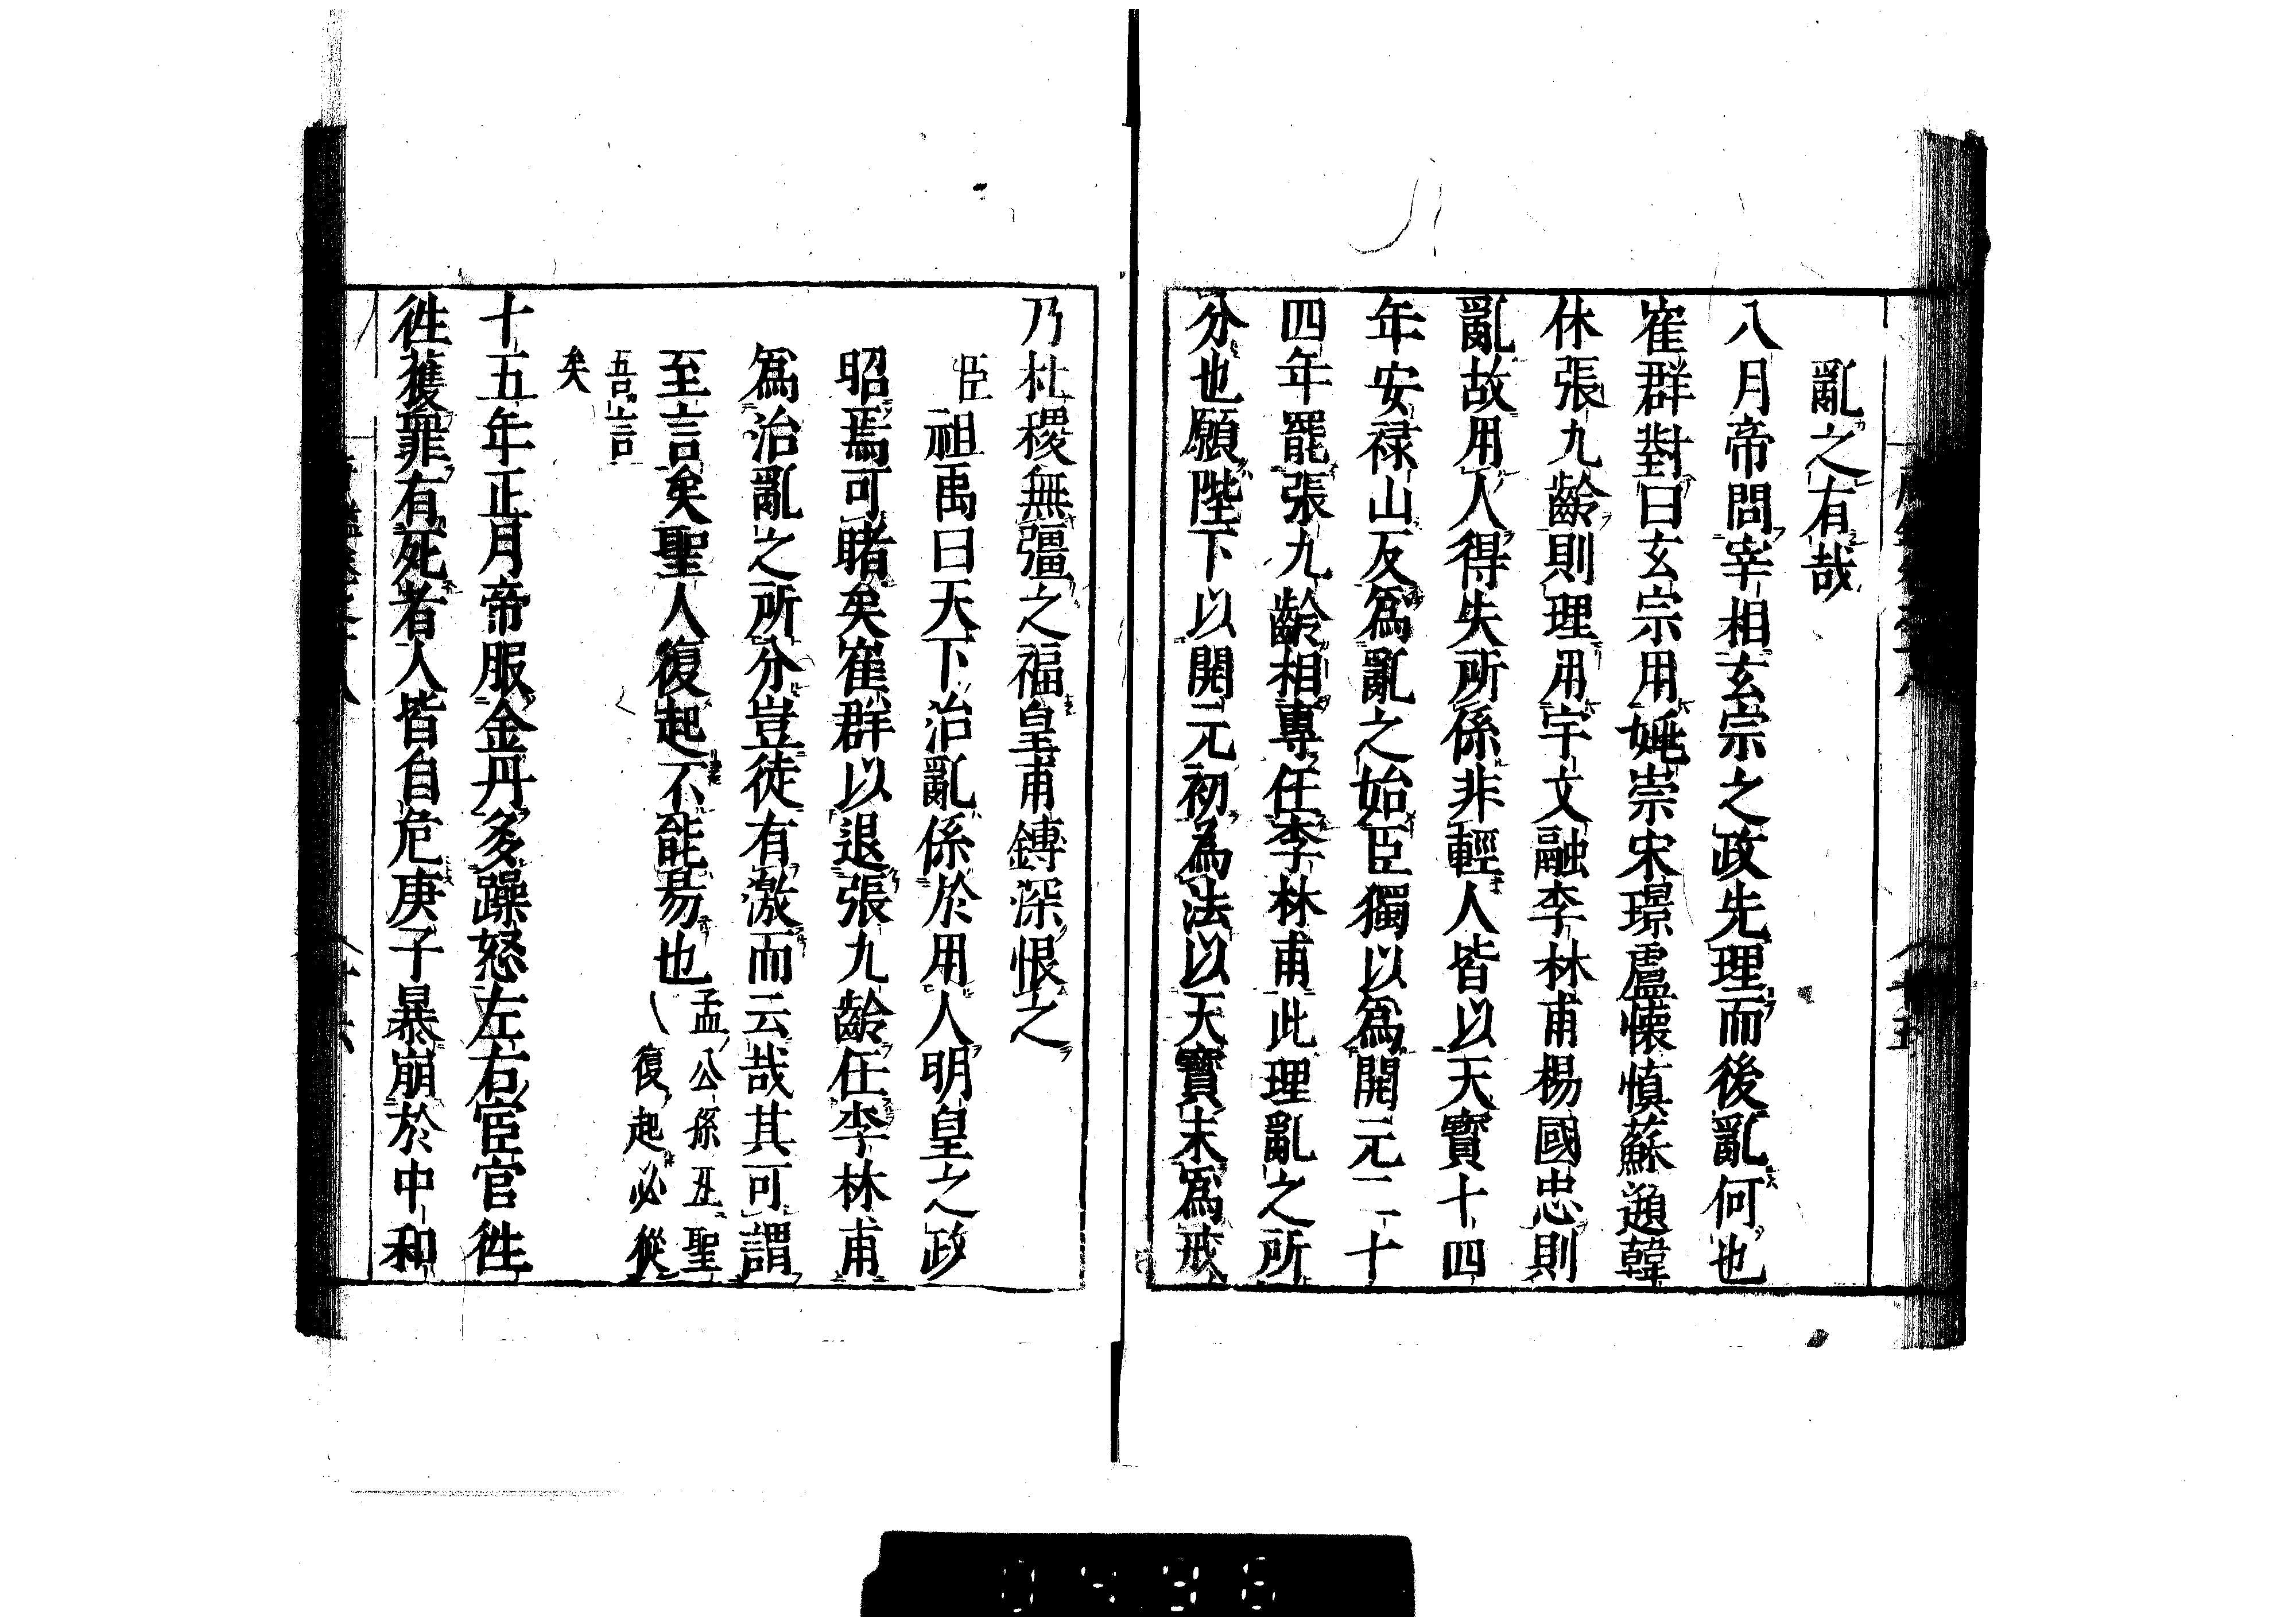 亂之有哉
八月帝問宰相玄宗之政先理而後亂何也
崔群對曰玄宗用姚崇宋璟盧懷慎蘇頲韓
休張九齡則理用宇文融李林甫楊國忠則
亂故用人得失所係非輕人皆以天寶十四
年安禄山反爲亂之始臣獨以爲開元二十
四年罷張九齡相專任李林甫此理亂之所
分也願陛下以開元初爲法以天寶末爲戒
乃社稷無彊之福皇甫鎛深恨之
臣祖禹曰天下治亂係於用人明皇之政
昭焉可睹矣崔群以退張九齡任李林甫
爲治亂之所分豈徒有激而云哉其可謂
至言矣聖人復起不能易也孟公孫丑聖
復起必從
吾言
矣
十五年正月帝服金丹多躁怒左右宦官徃
徃獲罪有死者人皆自危庚子暴崩於中和